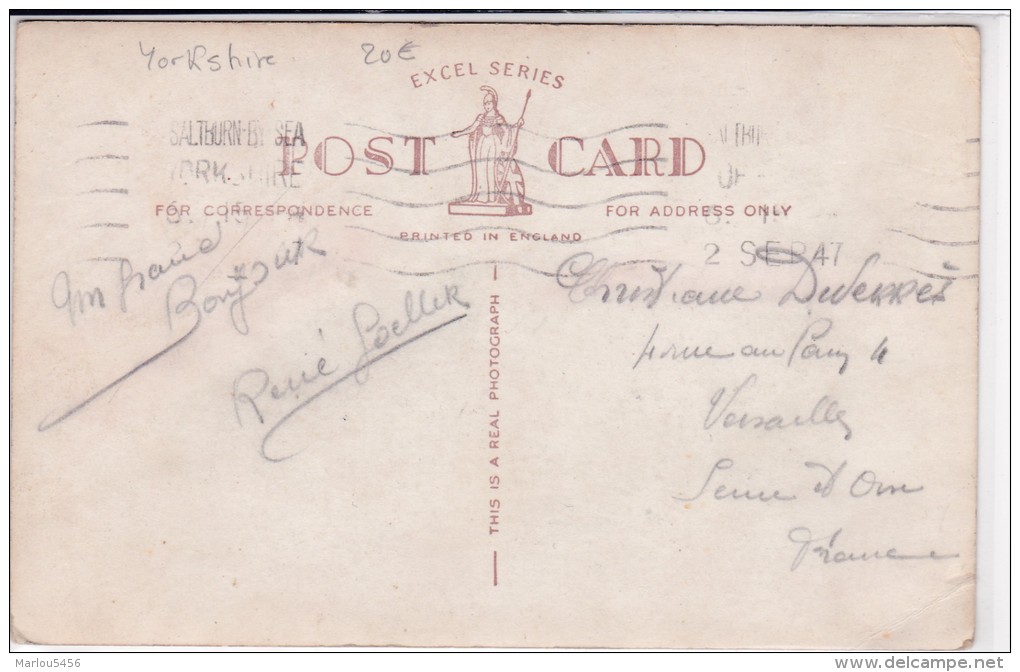 Yorkshire 20€
EXCEL SERIES
SALTBURN-BY SEA
POST CARD
YORKSHIRE
FOR CORRESPONDENCE
FOR ADDRESS ONLY
PRINTED IN ENGLAND
2 SEP 47
Un grand
Bonjour
René
THIS IS A REAL PHOTOGRAPH
Christiane
Versailles
Seine et Oise
France
Marlou5456
delcampe.net